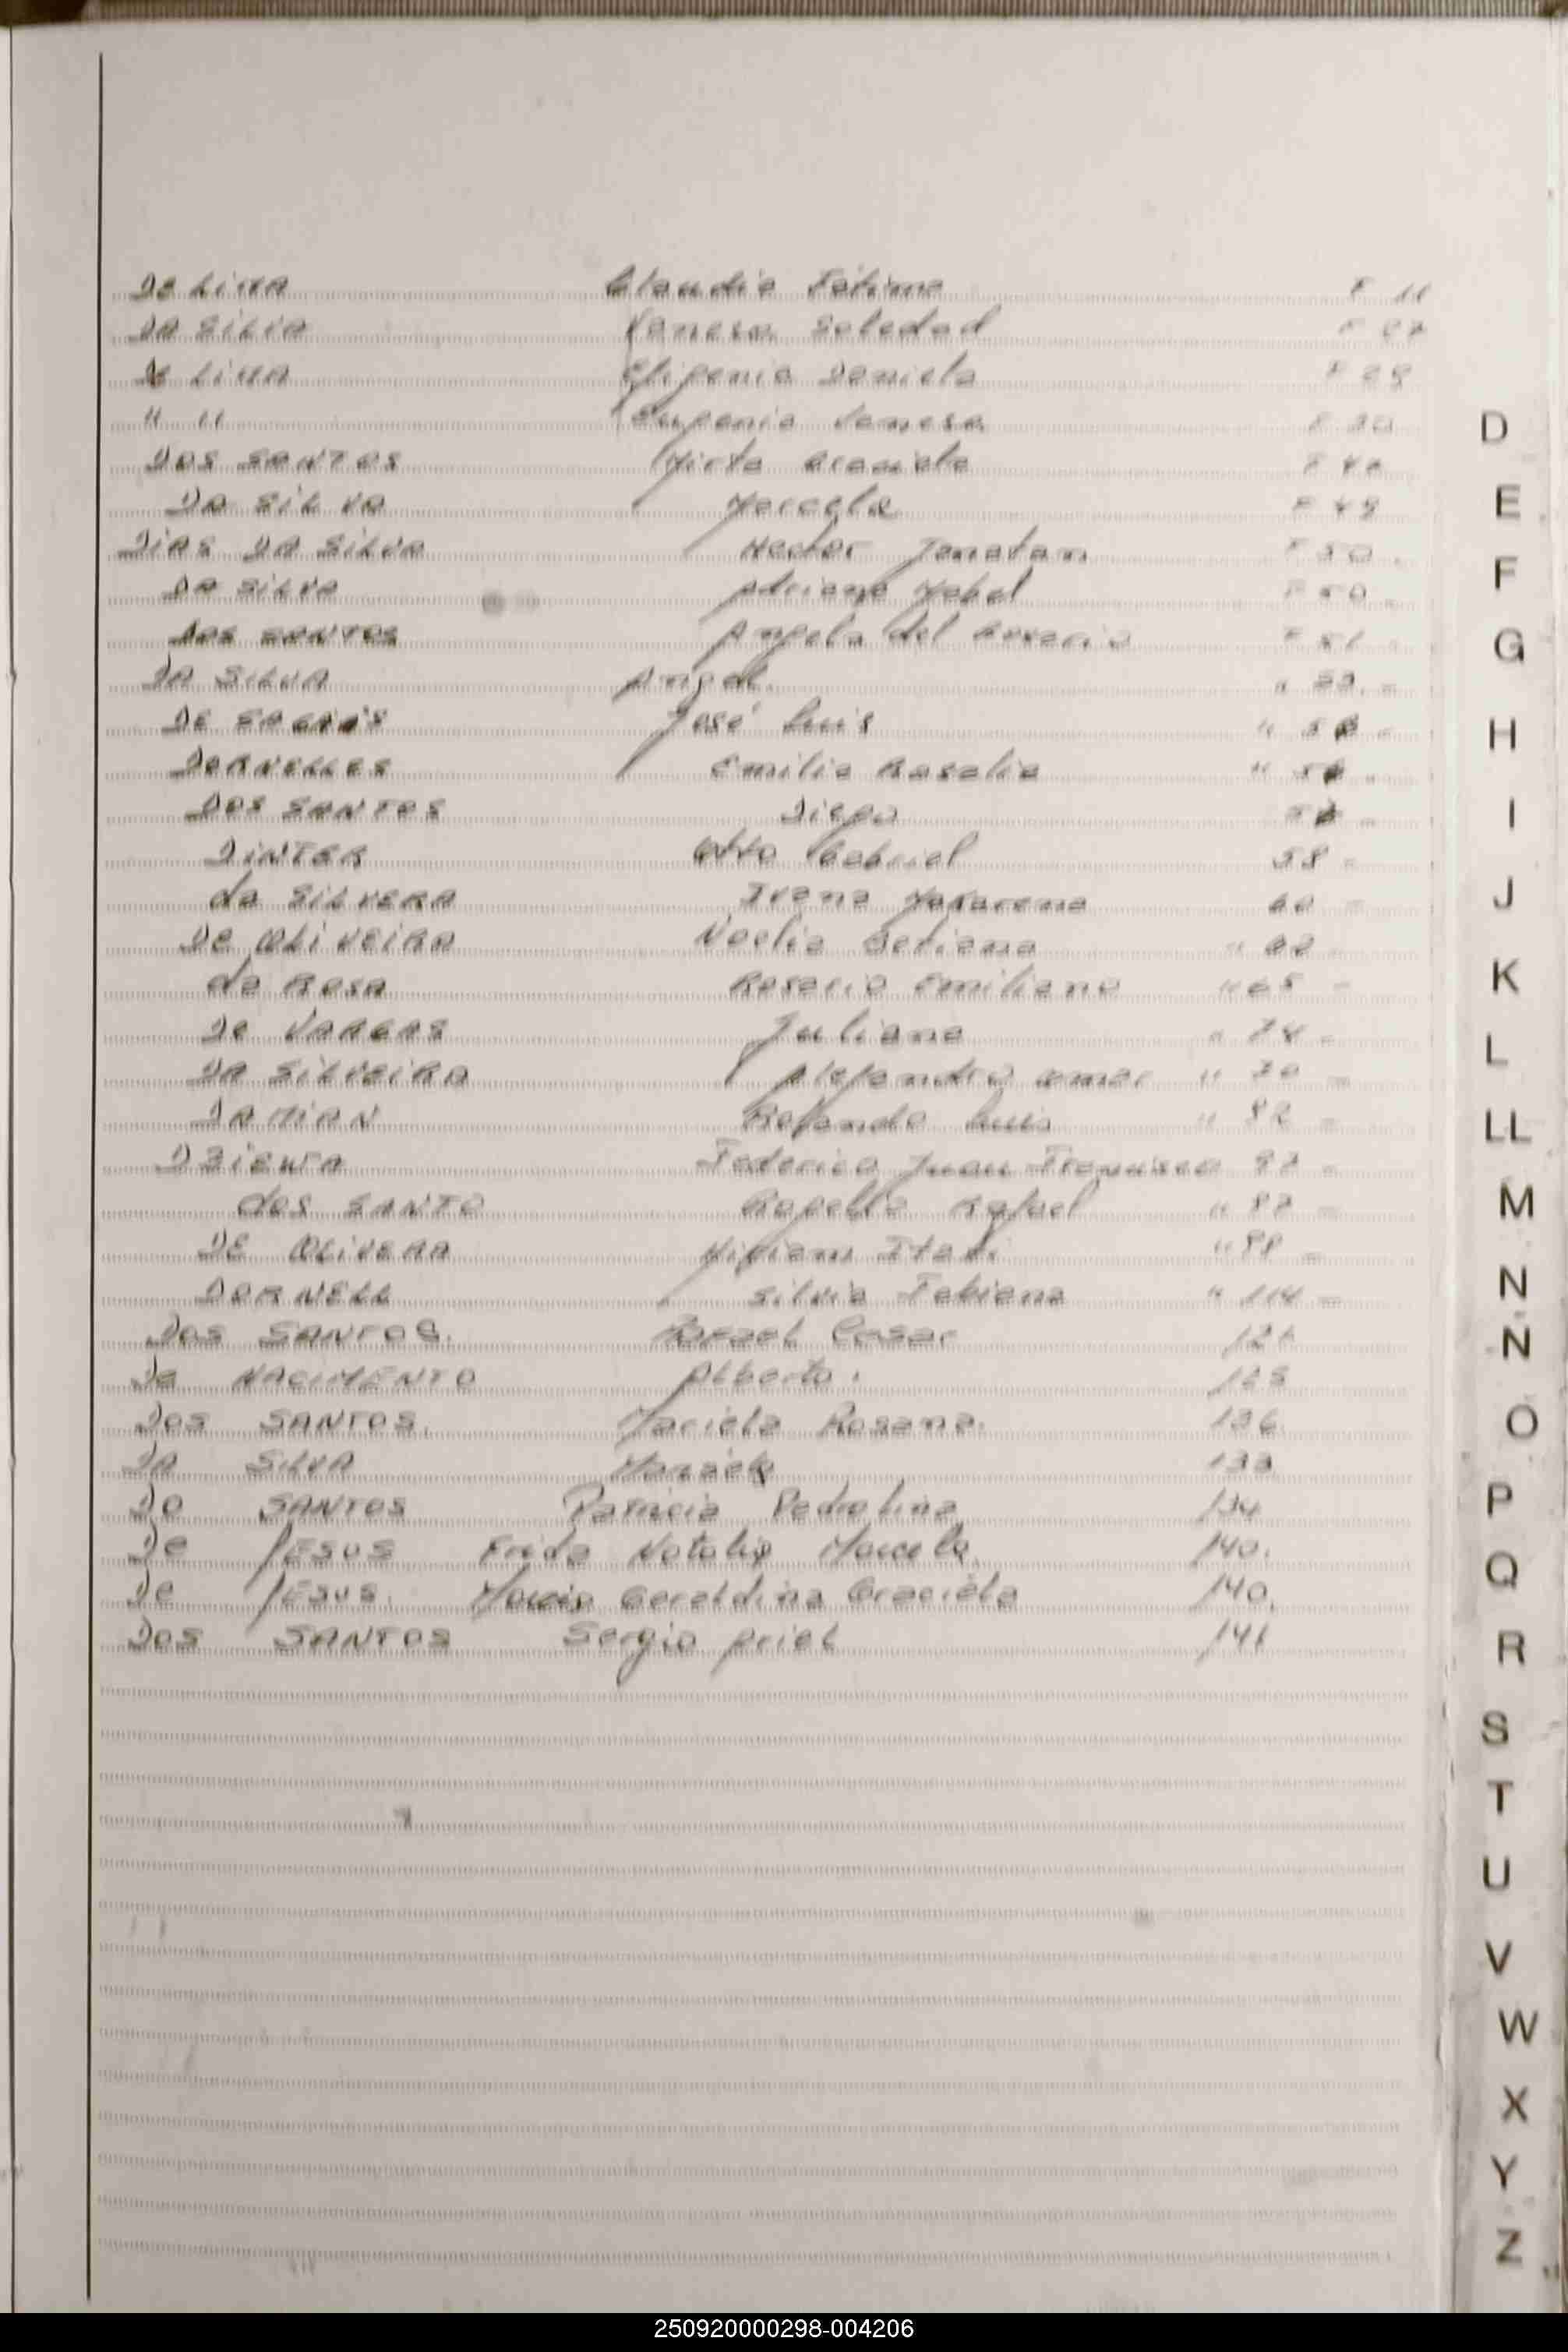 De LIMA Claudia Fátima F 11
DA SILVA Vanesa Soledad F 27
De LIMA Efigenia Daniela F 29
" " Eugenia Vanesa F 30
DOS SANTOS Mirta Graciela F
DA SILVA Marcela F 49
DIAS DA SILVA Hector Jonatan F 50
DA SILVA Adriana Mabel F 50
DOS SANTOS Angela del Rosario F 51
DA SILVA Angel. "
DE José Luis "
DORNELLES Emilia Rosalia "
DOS SANTOS Diego
DINTER Otto Gabriel 58
da SILVERA Ivana Macarena 60
De OLIVEIRA Noelia "
da ROSA Rosario Emiliano " 65
De VARGAS Juliana " 74
DA SILVEIRA Alejandro Omar "
DAMIAN Rolando Luis " 82
DZIEWA Federico Juan Francisco
dos SANTO Rafael "
DE OLIVERA Miriam Itatí " 88
DORNELL Silvia Fabiana " 114
Dos SANTOS. Rafael Cesar
Da NACIMENTO Alberto. 125
Dos SANTOS. Mariela Rosana. 126
DA SILVA 133
Do SANTOS Patricia Pedrolina 134
De JESUS Frida Natalia Marcela 140.
De JESUS. Geraldina Graciela 140.
Dos SANTOS Sergio Ariel 141
D
E
F
G
H
I
J
K
L
LL
M
N
Ñ
O
P
Q
R
S
T
U
V
W
X
Y
Z
250920000298-004206